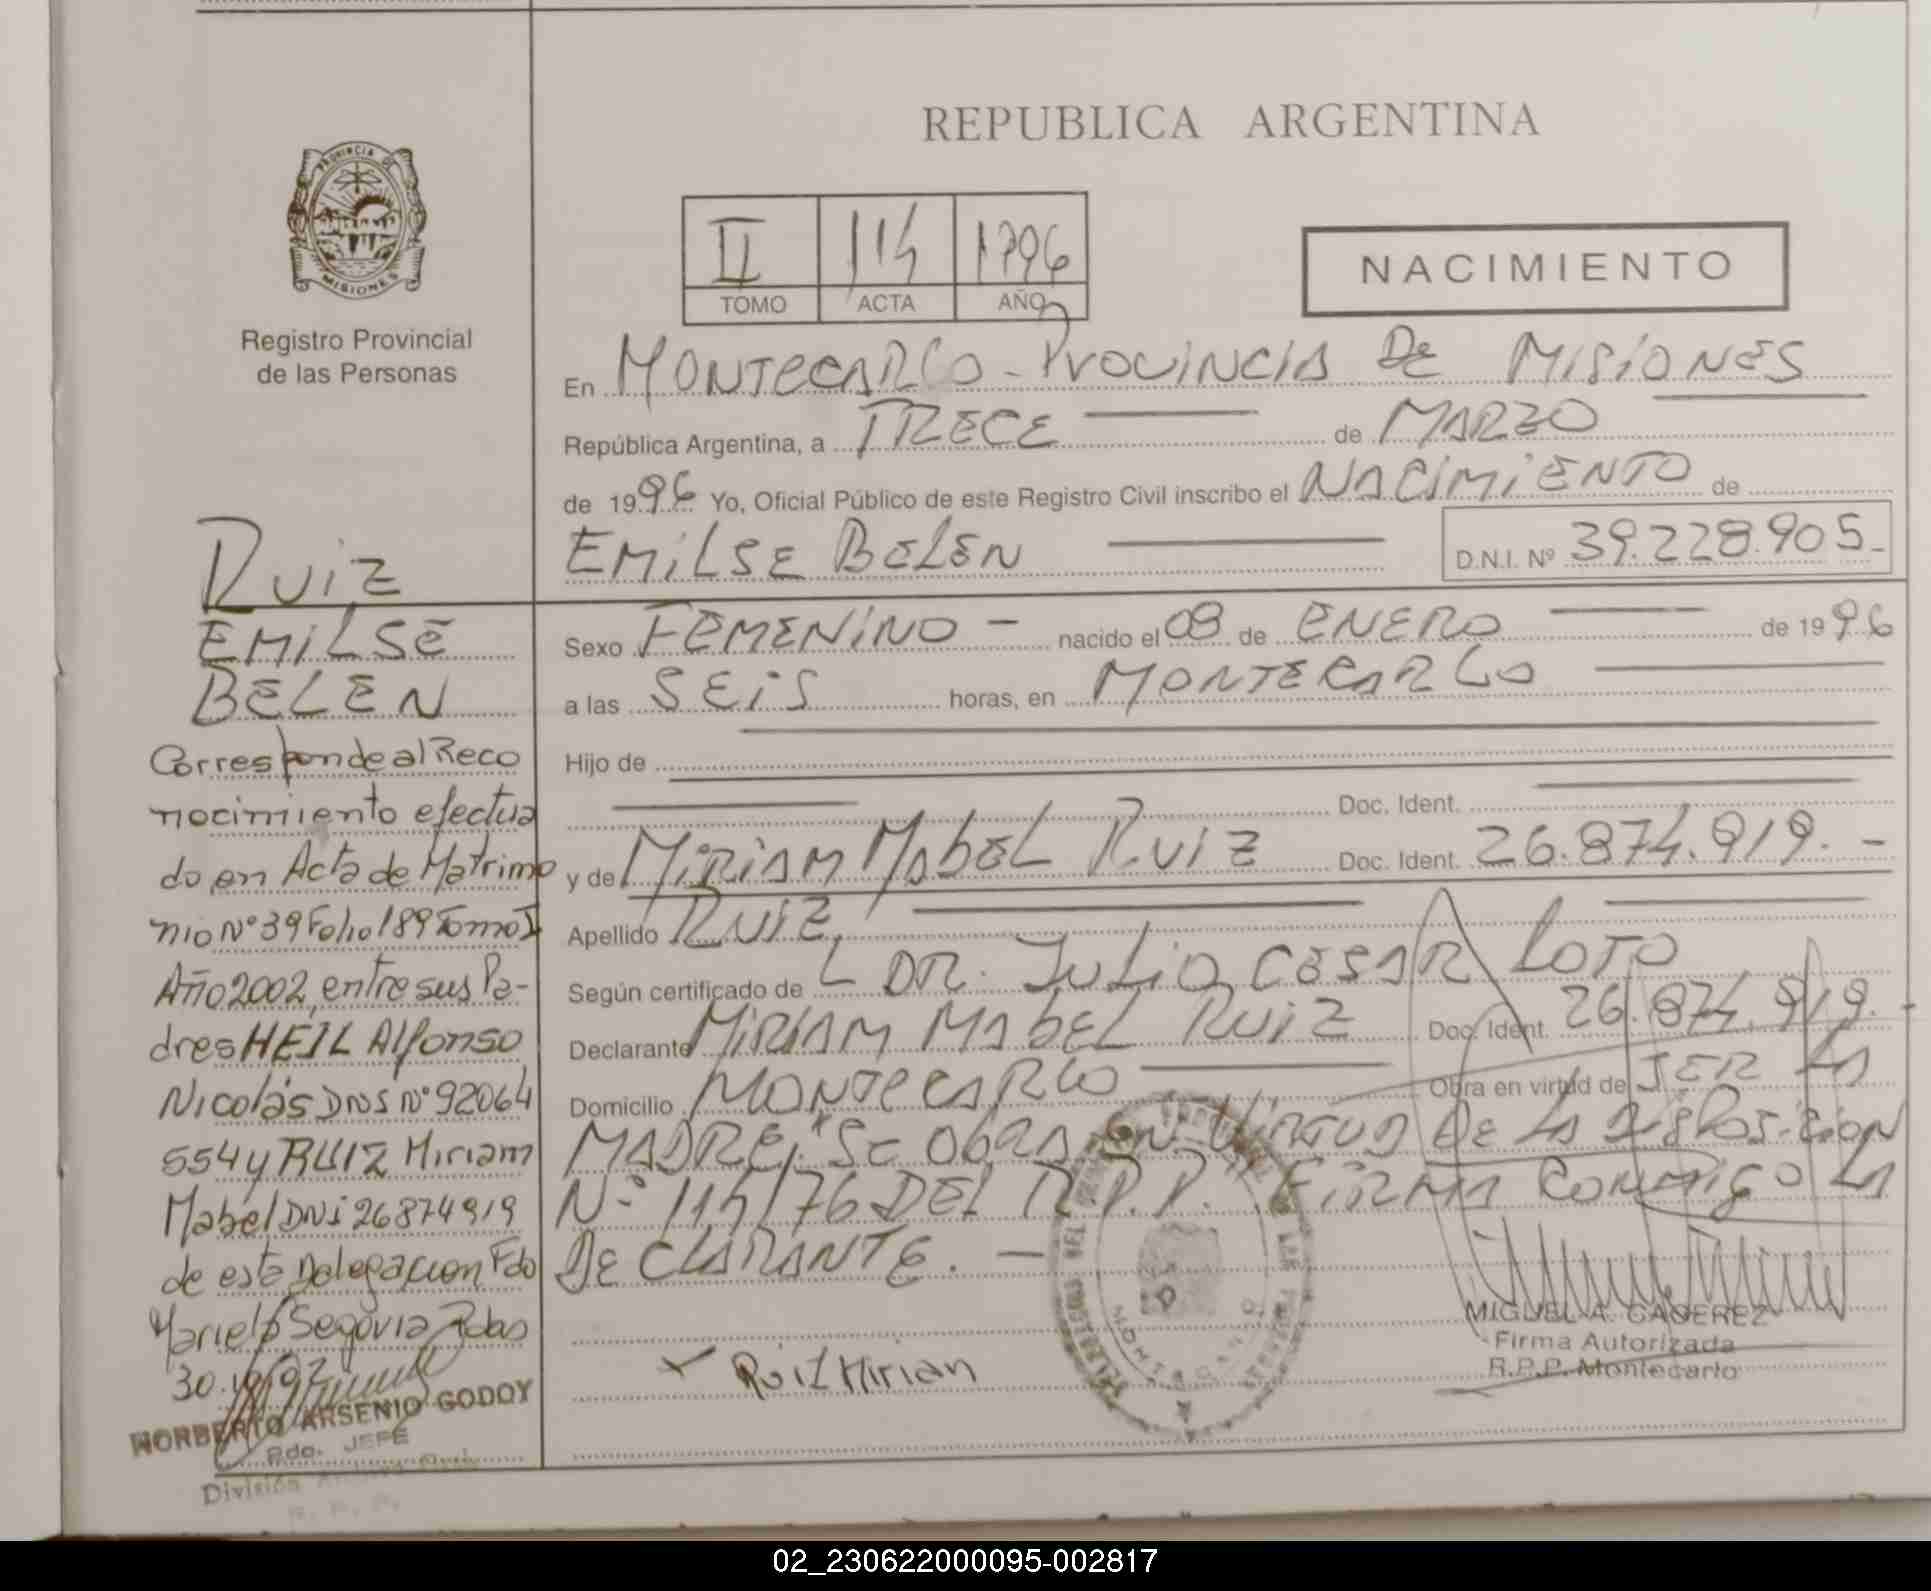 PROVINCIA DE
MISIONES
Registro Provincial
de las Personas
RUIZ
EMILSE
BELEN
Corresponde al Reco
nocimiento efectua
do en Acta de Matrimo
nio Nº 39 Folio 189 Tomo I
Año 2002, entre sus Pa-
dres HEIL Alfonso
Nicolás DNI Nº 92064
554 y RUIZ Miriam
Mabel DNI 26874919
de esta Delegacion Fdo
Mariela Segovia Pdas
NORBERTO ARSENIO GODOY
Pdo. JEFE
División
REPUBLICA ARGENTINA
II 114 1996
TOMO ACTA AÑO
NACIMIENTO
En MONTECARLO - PROVINCIA DE MISIONES
República Argentina, a TRECE de MARZO
de 1996 Yo, Oficial Público de este Registro Civil inscribo el NACIMIENTO de
EMILSE BELEN D.N.I. Nº 39.228.905-
Sexo FEMENINO - nacido el 08 de ENERO de 1996
a las SEIS horas, en MONTECARLO
Hijo de
Doc. Ident.
y de MIRIAM MABEL RUIZ Doc. Ident. 26.874.919.-
Apellido RUIZ
Según certificado de L DR. JULIO CESAR LOTO
Declarante MIRIAM MABEL RUIZ Doc. Ident. 26.874.919.-
Domicilio MONTECARLO Obra en virtud de SER LA
MADRE. * SE OBRA EN VIRTUD DE LA DISPOSICION
Nº 114/76 DEL R.P.P. FIRMA CONMIGO LA
DECLARANTE. -
Ruiz Mirian
MIGUEL A. CACEREZ
Firma Autorizada
R.P.P. Montecarlo
02_230622000095-002817